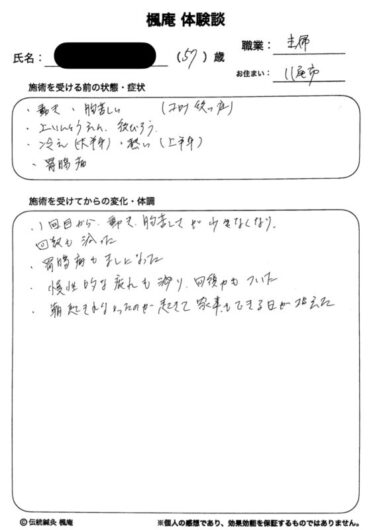 楓庵 体験談
氏名： （57）歳
職業： 主婦
お住まい： 八尾市
施術を受ける前の状態・症状
・動悸・胸苦しい
・冷え（下半身）・熱い（上半身）
・胃腸痛
施術を受けてからの変化・体調
・1回目から、動悸、胸苦しさが少なくなり、
回数も減った
・胃腸痛もましになった
・慢性的な疲れも減り、回復力もついた
・朝起きれなかったのが起きて家事もできる日が増えた
© 伝統鍼灸 楓庵
※個人の感想であり、効果効能を保証するものではありません。